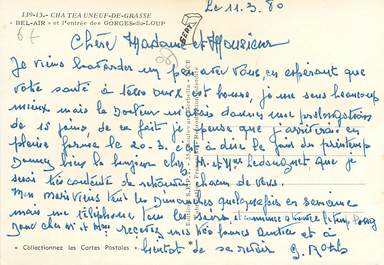 139-13. - CHATEAUNEUF-DE-GRASSE
« BEL-AIR » et l'entrée des GORGES-du-LOUP
Le 11.3.80
Chère Madame et Monsieur
Je viens bavarder un peu avec vous, en espérant que
votre santé à tous deux est bonne, je me sens beaucoup
mieux mais le Docteur m'a fait donner une prolongation
de 15 jours, de ce fait je pense que j'arriverai en
pleine forme le 20-3. c'est à dire le jour du printemps
Donnez bien le bonjour chez M. et Mme que je
suis très contente de retrouver chacun de vous.
Mon mari vient tous les dimanches quelquefois en semaine
mais me téléphone tous les soirs, et comme à trouve le temps long
Tous deux recevez nos très bonnes amitiés et à
bientôt de se revoir G.
« Collectionnez les Cartes Postales »